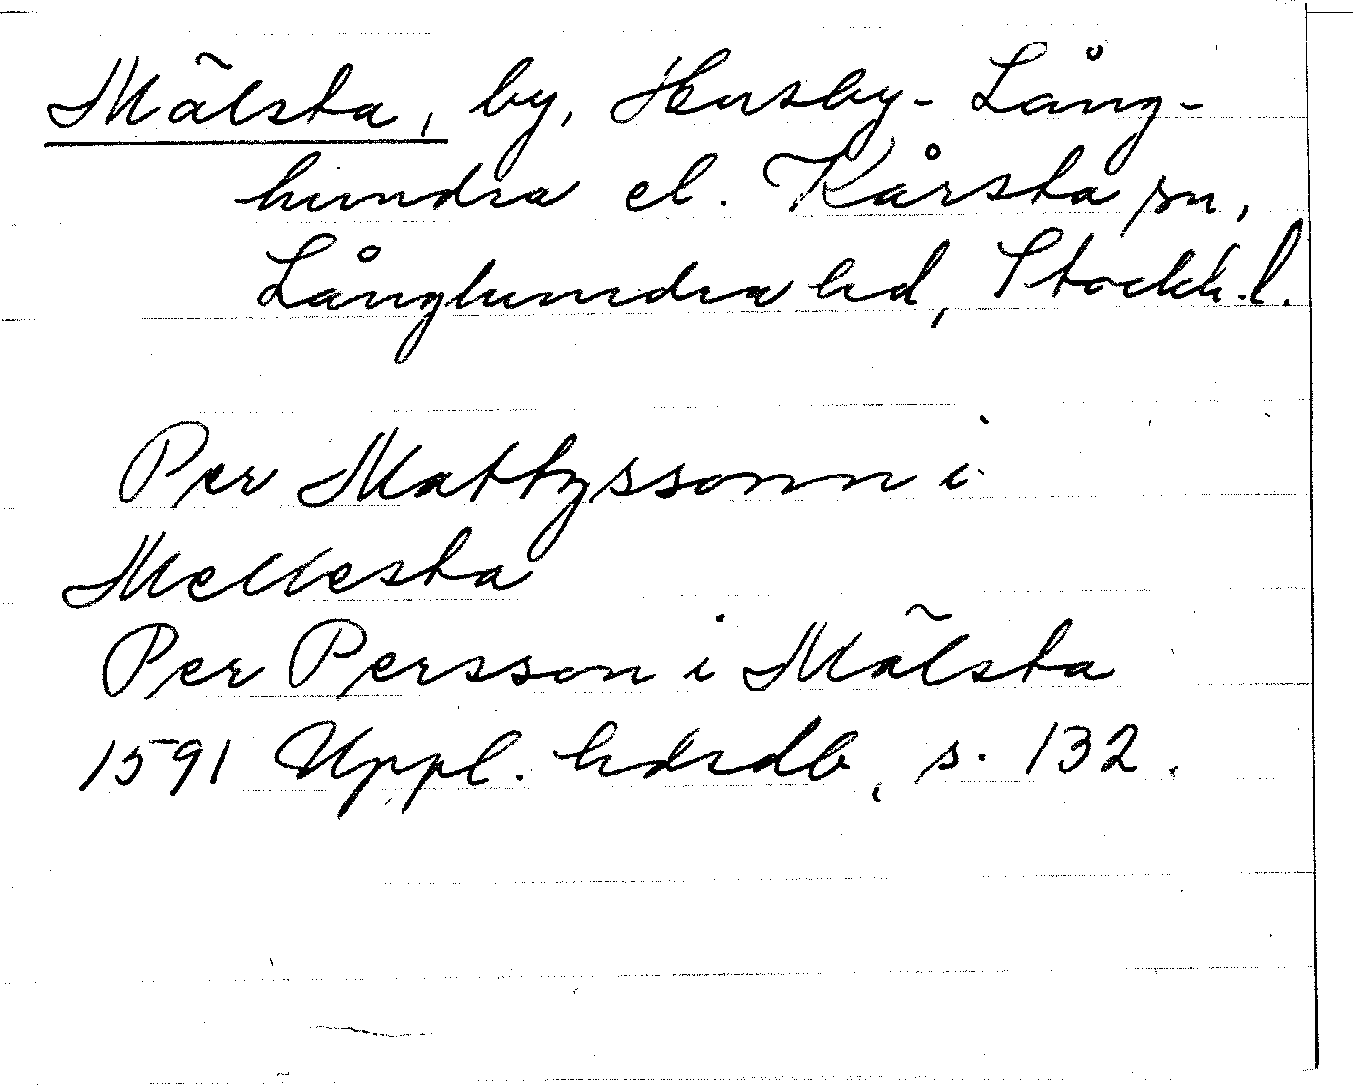 Mälsta, by, Husby-Lång-
hundra el. Kårsta sn,
Långhundra hd, Stockh. l.
Per Mattyssonn i
Mellesta
Per Persson i Mälsta
1591 Uppl. hdrdb, s. 132.